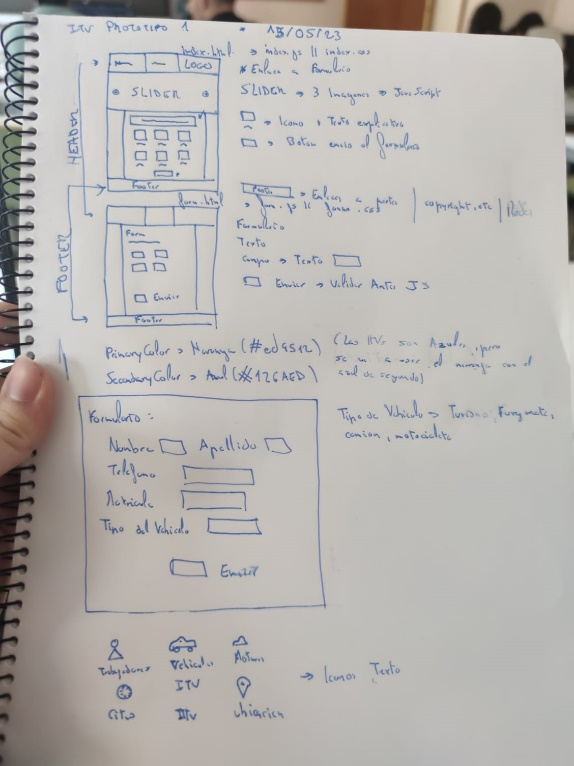 ITV PROTOTIPO 1 * 15/05/23
index.html → index.js || index.css
LOGO
* Enlace a Formulario
SLIDER
SLIDER → 3 Imagenes → JavaScript
→ Icono + Texto explicativo
→ Boton envio al formulario
HEADER
Footer
Footer → Enlaces a | copyright, etc |
form.html
→ form.js || form.css
Formulario
Form
Texto
campo → Texto
FOOTER
Enviar
Enviar → Validar Antes JS
Footer
PrimaryColor → Naranja (#ed9512)
SecondaryColor → Azul (#126AED)
(Las ITVs son Azules, pero
se a el naranja con el
azul de segundo)
Formulario:
Nombre Apellido
Telefono
Matricula
Tipo del Vehiculo
Enviar
Tipo de Vehiculo → Turismo, Furgoneta,
camion, motocicleta
Trabajadores Vehiculos
ITV
Citas ITV ubicacion
→ Iconos Texto